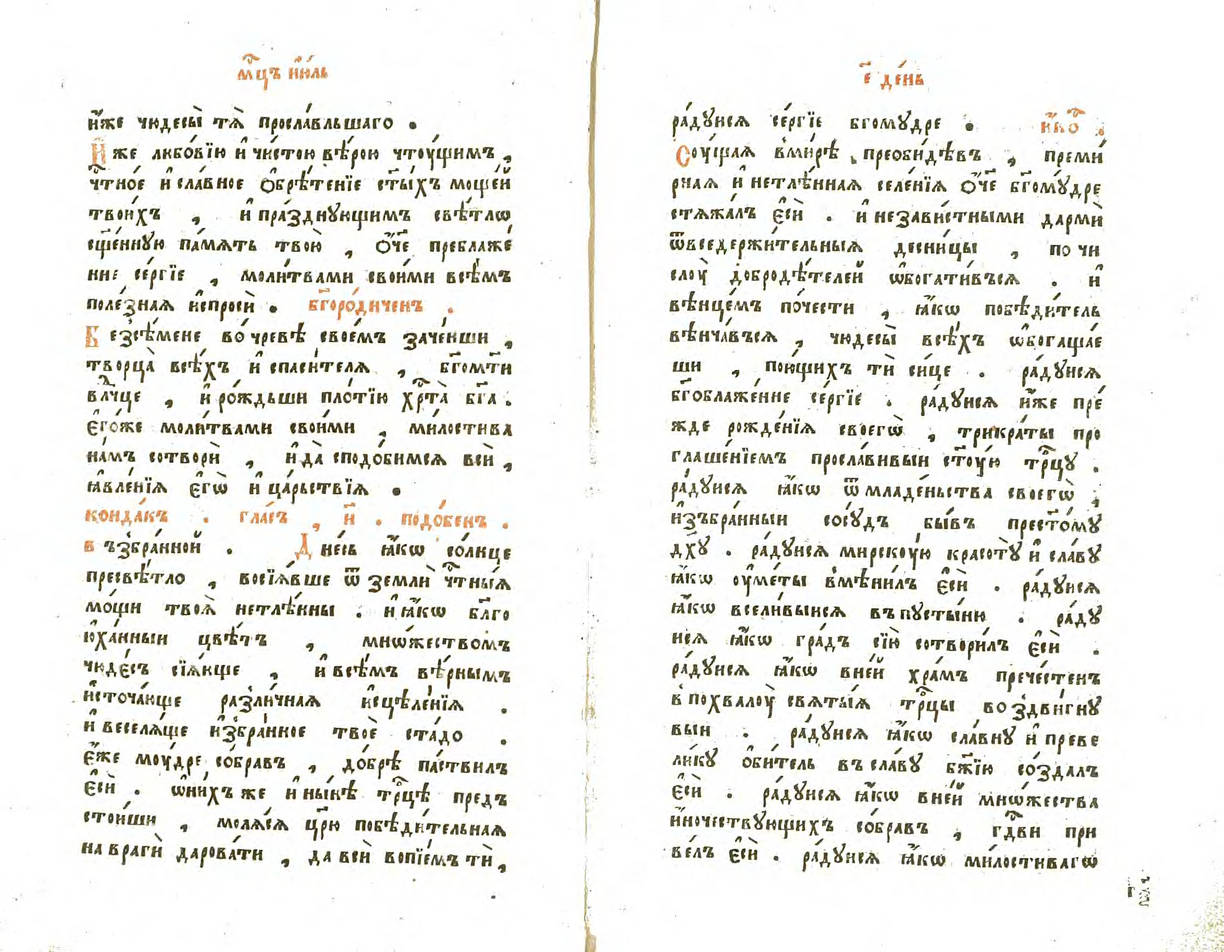 мц҃ъ и҆ю́ль
и҆́же чюдесы̀ тѧ̀ просла́вльшаго .
И҆́же любо́вїю и҆ чи́стою вѣ́рою чтоу́щимъ ,
чⷭ҇тное и҆ сла́вное ѻ҆брѣ́тенїе ст҃ы́хъ моще́й
твои́хъ , и҆ пра́зднующимъ свѣ́тлѡ
сщ҃е́нную па́мѧть твою̀ , ѻ҆́ч҃е преблаже́
нне се́ргїе , моли́твами свои́ми всѣ́мъ
поле́знаѧ и҆спросѝ . бг҃оро́диченъ .
Безсѣ́мене во чре́вѣ свое́мъ заче́нши ,
творца̀ всѣ́хъ и҆ спаси́телѧ , бг҃омт҃и
влⷣчце , и҆ ро́ждьши пло́тїю хрⷭ҇та̀ бг҃а .
є҆го́же моли́твами свои́ми , ми́лостива
на́мъ сотворѝ , и҆ да сподо́бимсѧ всѝ ,
ꙗ҆вле́нїѧ є҆гѡ̀ и҆ ца́рьствїѧ .
конда́къ . гла́съ , и҃ . подо́бенъ .
възбра́нной . Дне́сь ꙗ҆́кѡ со́лнце
пресвѣ́тло , восїѧ́вше ѿ землѝ чⷭ҇тны́ѧ
мо́щи твоѧ̀ нетлѣ́нны . и҆ ꙗ҆́кѡ бл҃го
ю҆ха́нныи цвѣ́тъ , мнѡ́жествомъ
чюде́съ сїѧ́юще , и҆ всѣ́мъ вѣ́рнымъ
и҆сточа́юще разли́чнаѧ и҆сцѣле́нїѧ .
и҆ веселѧ́ще и҆збра́нное твоѐ ста́до .
є҆́же моу́дре собра́въ , до́брѣ па́ствилъ
є҆сѝ . ѡ҆ ни́хъ же и҆ ны́нѣ трⷪ҇цѣ предъ
стои́ши , молѧ́сѧ цр҃ю побѣди́тельнаѧ
на врагѝ дарова́ти , да всѝ вопїе́мъ тѝ ,
є҃ де́нь
ра́дуисѧ се́ргїе бг҃ому́дре . и҆́коⷭ҇ .
Соу́щаѧ в ми́рѣ , преоби́дѣвъ , преми́
рнаѧ и҆ нетлѣ́ннаѧ селе́нїѧ ѻ҆́ч҃е бг҃ому́дре
стѧжа́лъ є҆сѝ . и҆ незави́стными дармѝ
ѿ вседержи́тельныѧ десни́цы , по чи
слоу̀ добродѣ́телей ѡ҆богати́въсѧ . и҆
вѣнце́мъ по́чести , ꙗ҆́кѡ побѣди́тель
вѣнча́въсѧ , чюдесы̀ всѣ́хъ ѡ҆богаща́е
ши , пою́щихъ тѝ си́це . ра́дуисѧ
бг҃облаже́нне се́ргїе . ра́дуисѧ и҆́же пре́
жде рожде́нїѧ своегѡ̀ , трикра́ты про
глаше́нїемъ просла́вивыи ст҃у́ю трⷪ҇цу .
ра́дуисѧ ꙗ҆́кѡ ѿ младе́ньства своегѡ̀ ,
и҆зъбра́нныи сосу́дъ бы́въ прест҃о́му
дх҃у . ра́дуисѧ мирскоу́ю красоту̀ и҆ сла́ву
ꙗ҆́кѡ оу҆ме́ты в мѣни́лъ є҆сѝ . ра́дуисѧ
ꙗ҆́кѡ всели́выисѧ въ пусты́ню . ра́ду
исѧ ꙗ҆́кѡ гра́дъ сїю̀ сотвори́лъ є҆сѝ .
ра́дуисѧ ꙗ҆́кѡ в не́й хра́мъ пречⷭ҇тенъ
в похвалоу̀ свѧты́ѧ трⷪ҇цы воздви́гну
выи . ра́дуисѧ ꙗ҆́кѡ сла́вну и҆ преве
ли́ку ѻ҆би́тель въ сла́ву бж҃їю созда́лъ
є҆сѝ . ра́дуисѧ ꙗ҆́кѡ в не́й мнѡ́жества
и҆но́чествующихъ собра́въ , гдⷭ҇ви при
ве́лъ є҆сѝ . ра́дуисѧ ꙗ҆́кѡ ми́лостивагѡ